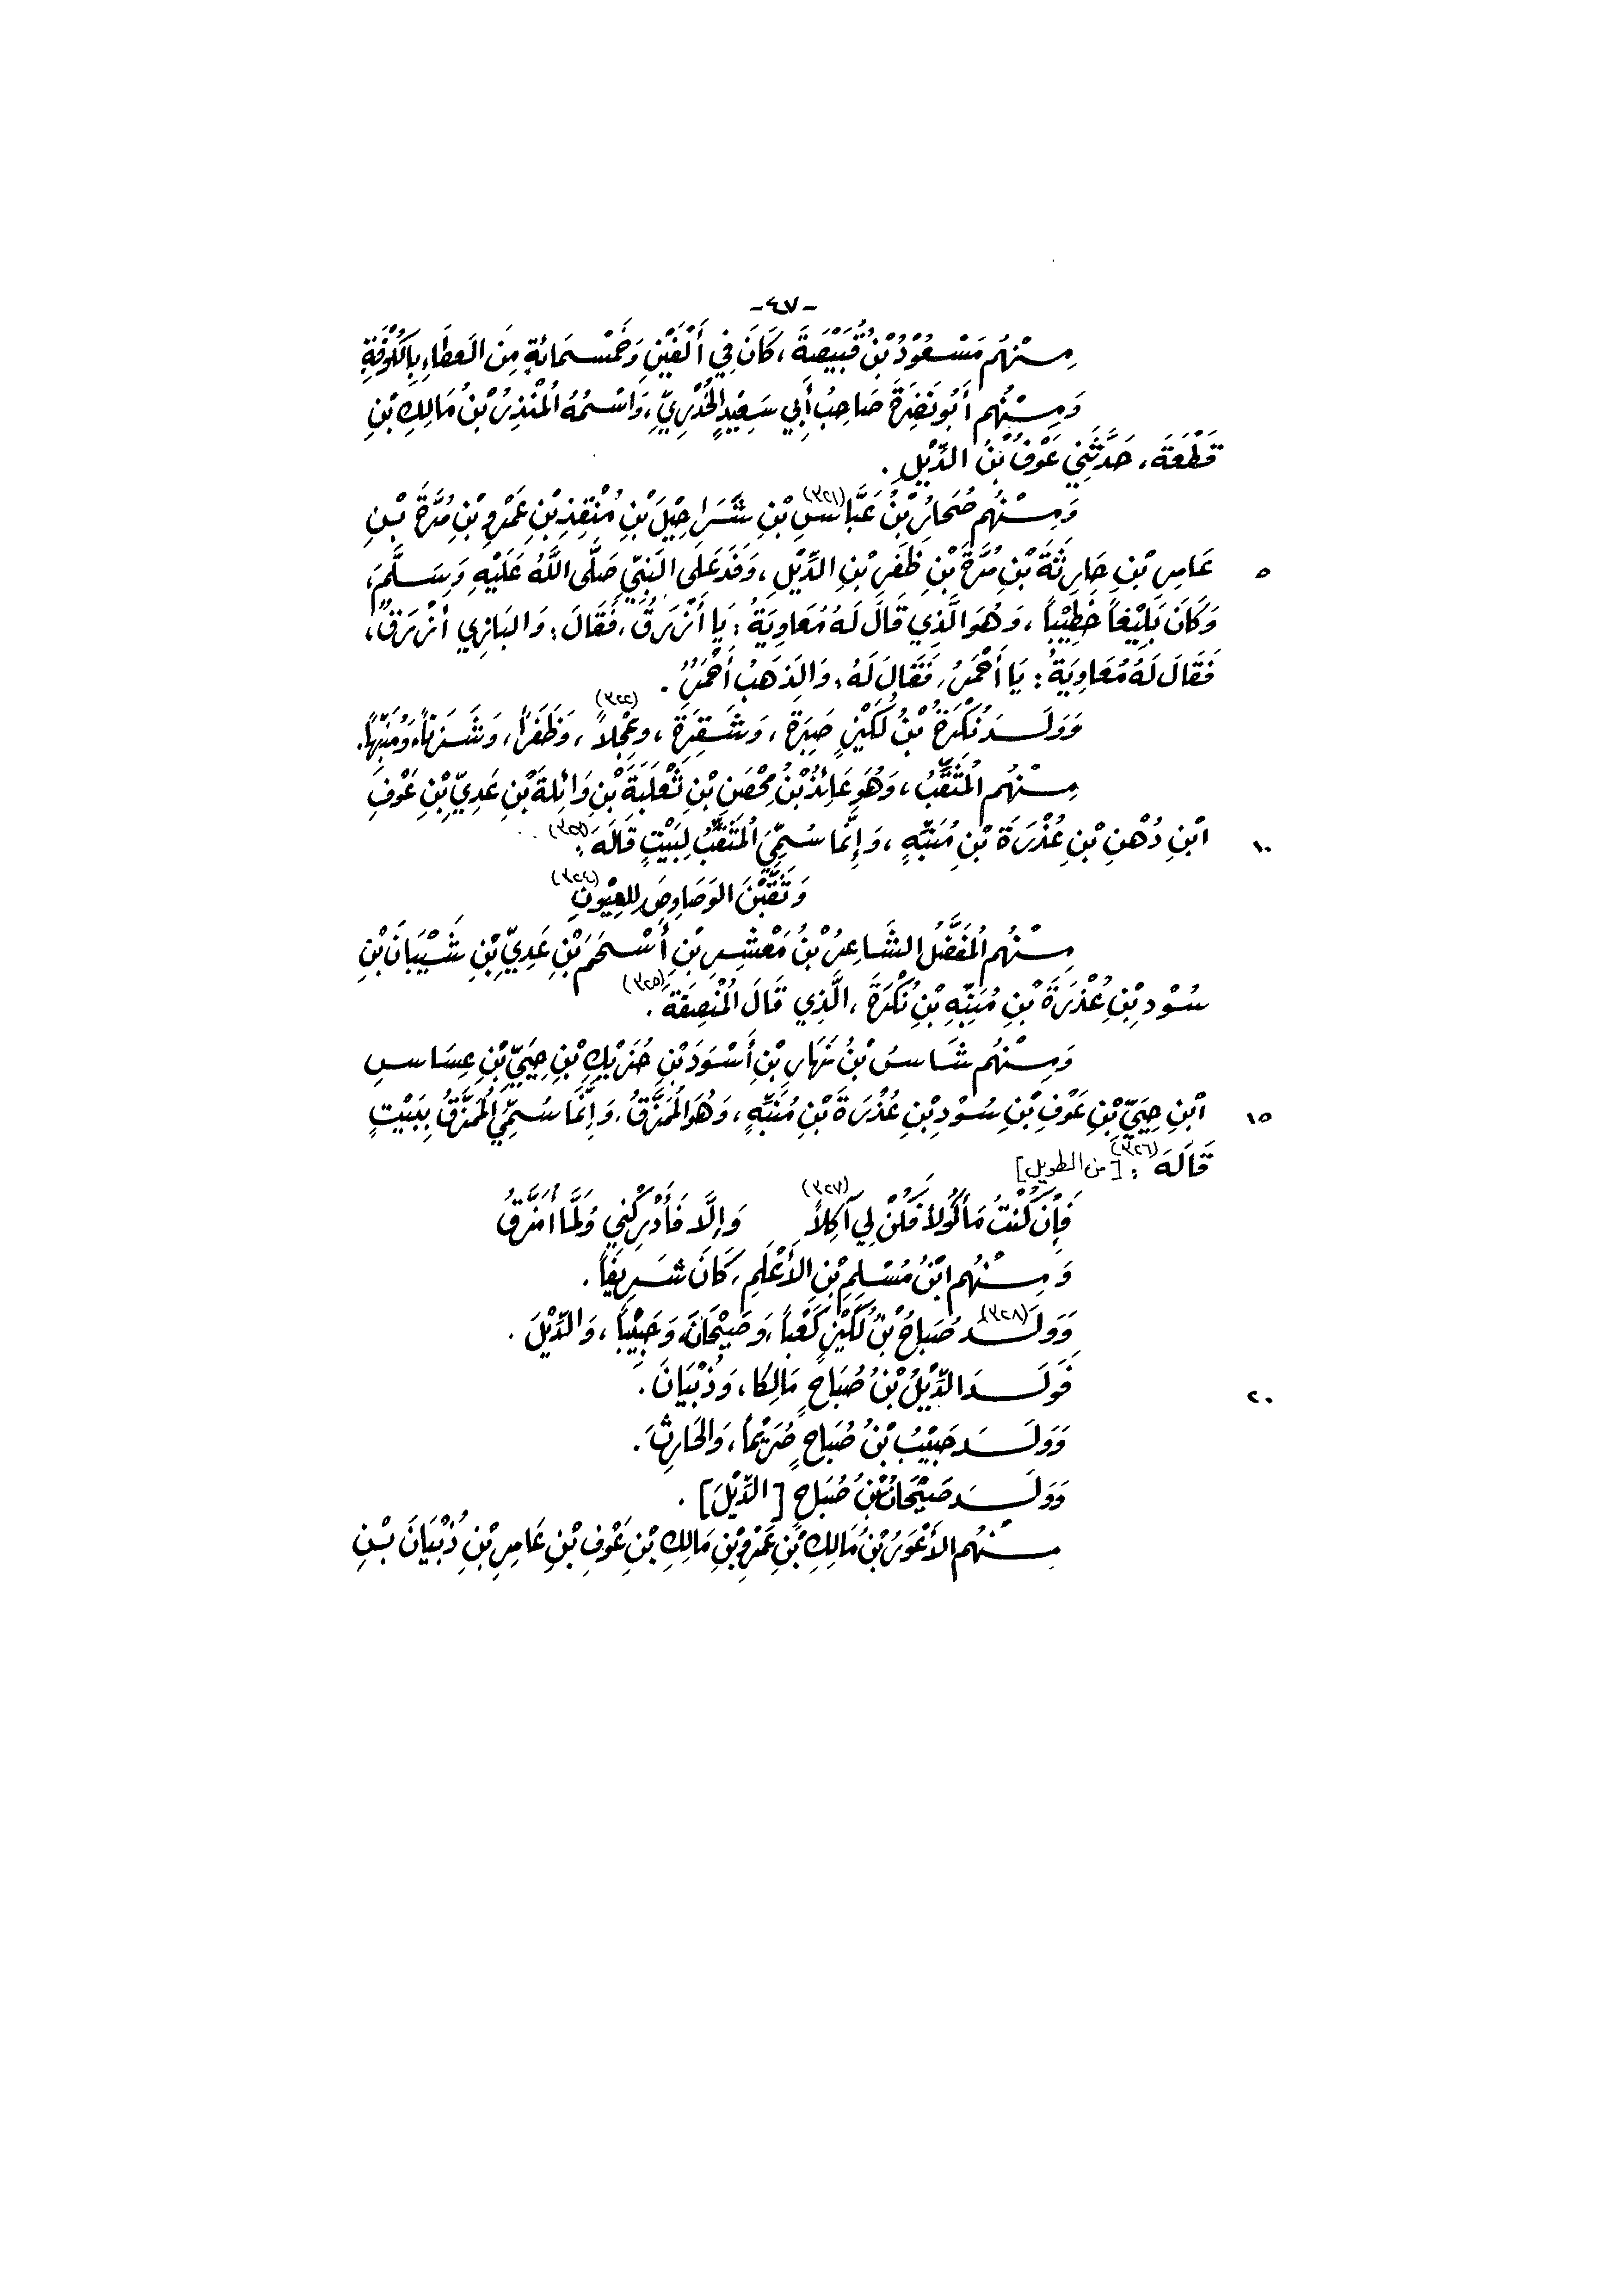 -٤٧-
مِنْهُم مَسْعُوْدُ بْنُ قُبَيْصَةَ، كَانَ فِي أَلْفَيْنِ وَخَمْسمَائةٍ مِنَ العَطَاءِ بِالكُوْفَةِ
وَمِنْهُم أَبُو نَضْرَةَ صَاحِبُ أَبِي سَعِيْدٍ الخُدْرِيِّ، وَاسْمُهُ المُنْذِرُ بْنُ مَالِكِ بْنِ
قَطْعَةَ، حَدَّثَنِي عَوْفُ بْنُ الدِّيْلِ.
وَمِنْهُم صُحَارُ بْنُ عَبَّاسِ (٣٢١) بْنِ شَرَاحِيْلَ بْنِ مُنْقِذِ بْنِ عَمْرِو بْنِ مُرَّةَ بْنِ
عَامِرِ بْنِ حَارِثَةَ بْنِ مُرَّةَ بْنِ ظَفَرِ بْنِ الدِّيْلِ، وَفَدَ عَلَى النَّبِيِّ صَلَّى اللَّهُ عَلَيْهِ وَسَلَّمَ، ٥
وَكَانَ بَلِيْغاً خَطِيْباً، وَهُوَ الَّذِي قَالَ لَهُ مُعَاوِيَةُ: يَا أَزْرَقُ، فَقَالَ: وَالبَازِي أَزْرَقُ،
فَقَالَ لَهُ مُعَاوِيَةُ: يَا أَحْمَرُ، فَقَالَ لَهُ: وَالذَهَبُ أَحْمَرُ.
وَوَلَدَ نُكْرَةُ بْنُ لُكَيْزٍ صَبِرَةَ، وَشَقِرَةَ، وَعِجْلاً (٣٢٢)، وَظَفَراً، وَشَزَناً، وَمُنَبِّهاً.
مِنْهُم المُثَقِّبُ، وَهُوَ عَائِذُ بْنُ مِحْصَنِ بْنِ ثَعْلَبَةَ بْنِ وَائِلَةَ بْنِ عَدِيِّ بْنِ عَوْفِ
ابْنِ دُهْنِ بْنِ عُذْرَةَ بْنِ مُنَبِّهٍ، وَإِنَّمَا سُمِّيَ المُثَقِّبُ لِبَيْتٍ قَالَهَ (٣٢٣): ١٠
وَثَقَّبْنَ الوَصَاوِصَ لِلعِيُونِ (٣٢٤)
مِنْهُم المُفَضَّلُ الشَاعِرُ بْنُ مَعْشَرِ بْنِ أَسْحَمَ بْنِ عَدِيِّ بْنِ شَيْبَانَ بْنِ
سُوْدِ بْنِ عُذْرَةَ بْنِ مُنَبِّهِ بْنِ نُكْرَةَ، الَّذِي قَالَ المُنْصِفَةَ (٣٢٥).
وَمِنْهُم شَاسُ بْنُ نَهَارِ بْنِ أَسْوَدَ بْنِ حُزَيْكِ بْنِ حِيَيِّ بْنِ عِسَاسِ
ابْنِ حِيَيِّ بْنِ عَوْفِ بْنِ سُوْدِ بْنِ عُذْرَةَ بْنِ مُنَبِّهٍ، وَهُوَ المُمَزَّقُ، وَإِنَّمَا سُمِّيَ المُمَزَّقُ بِبَيْتٍ ١٥
قَالَهَ (٣٢٦): [من الطويل]
فَإِنْ كُنْتُ مَأْكُولاً فَكُنْ لِي آكِلاً (٣٢٧) وَإِلَّا فَأَدْرِكْنِي وَلَمَّا أُمَزَّقُ
وَمِنْهُم ابْنُ مُسْلِمِ بْنِ الأَعْلَمِ، كَانَ شَرِيفاً.
وَوَلَدَ (٣٢٨) صُبَاحُ بْنُ لُكَيْزٍ كَعْباً، وَصَيْحَانَ، وَحَبِيْباً، وَالدِّيْلَ.
فَوَلَدَ الدِّيْلُ بْنُ صُبَاحٍ مَالِكا، وَذُبْيَانَ. ٢٠
وَوَلَدَ حَبِيْبُ بْنُ صُبَاحٍ صُرَيْمَاً، وَالحَارِثَ.
وَوَلَدَ صَيْحَانُ بْنُ صُبَاحٍ [الدِّيْلَ].
مِنْهُم الأَعْوَرُ بْنُ مَالِكِ بْنِ عَمْرِو بْنِ مَالِكِ بْنِ عَوْفِ بْنِ عَامِرِ بْنِ ذُبْيَانَ بْنِ